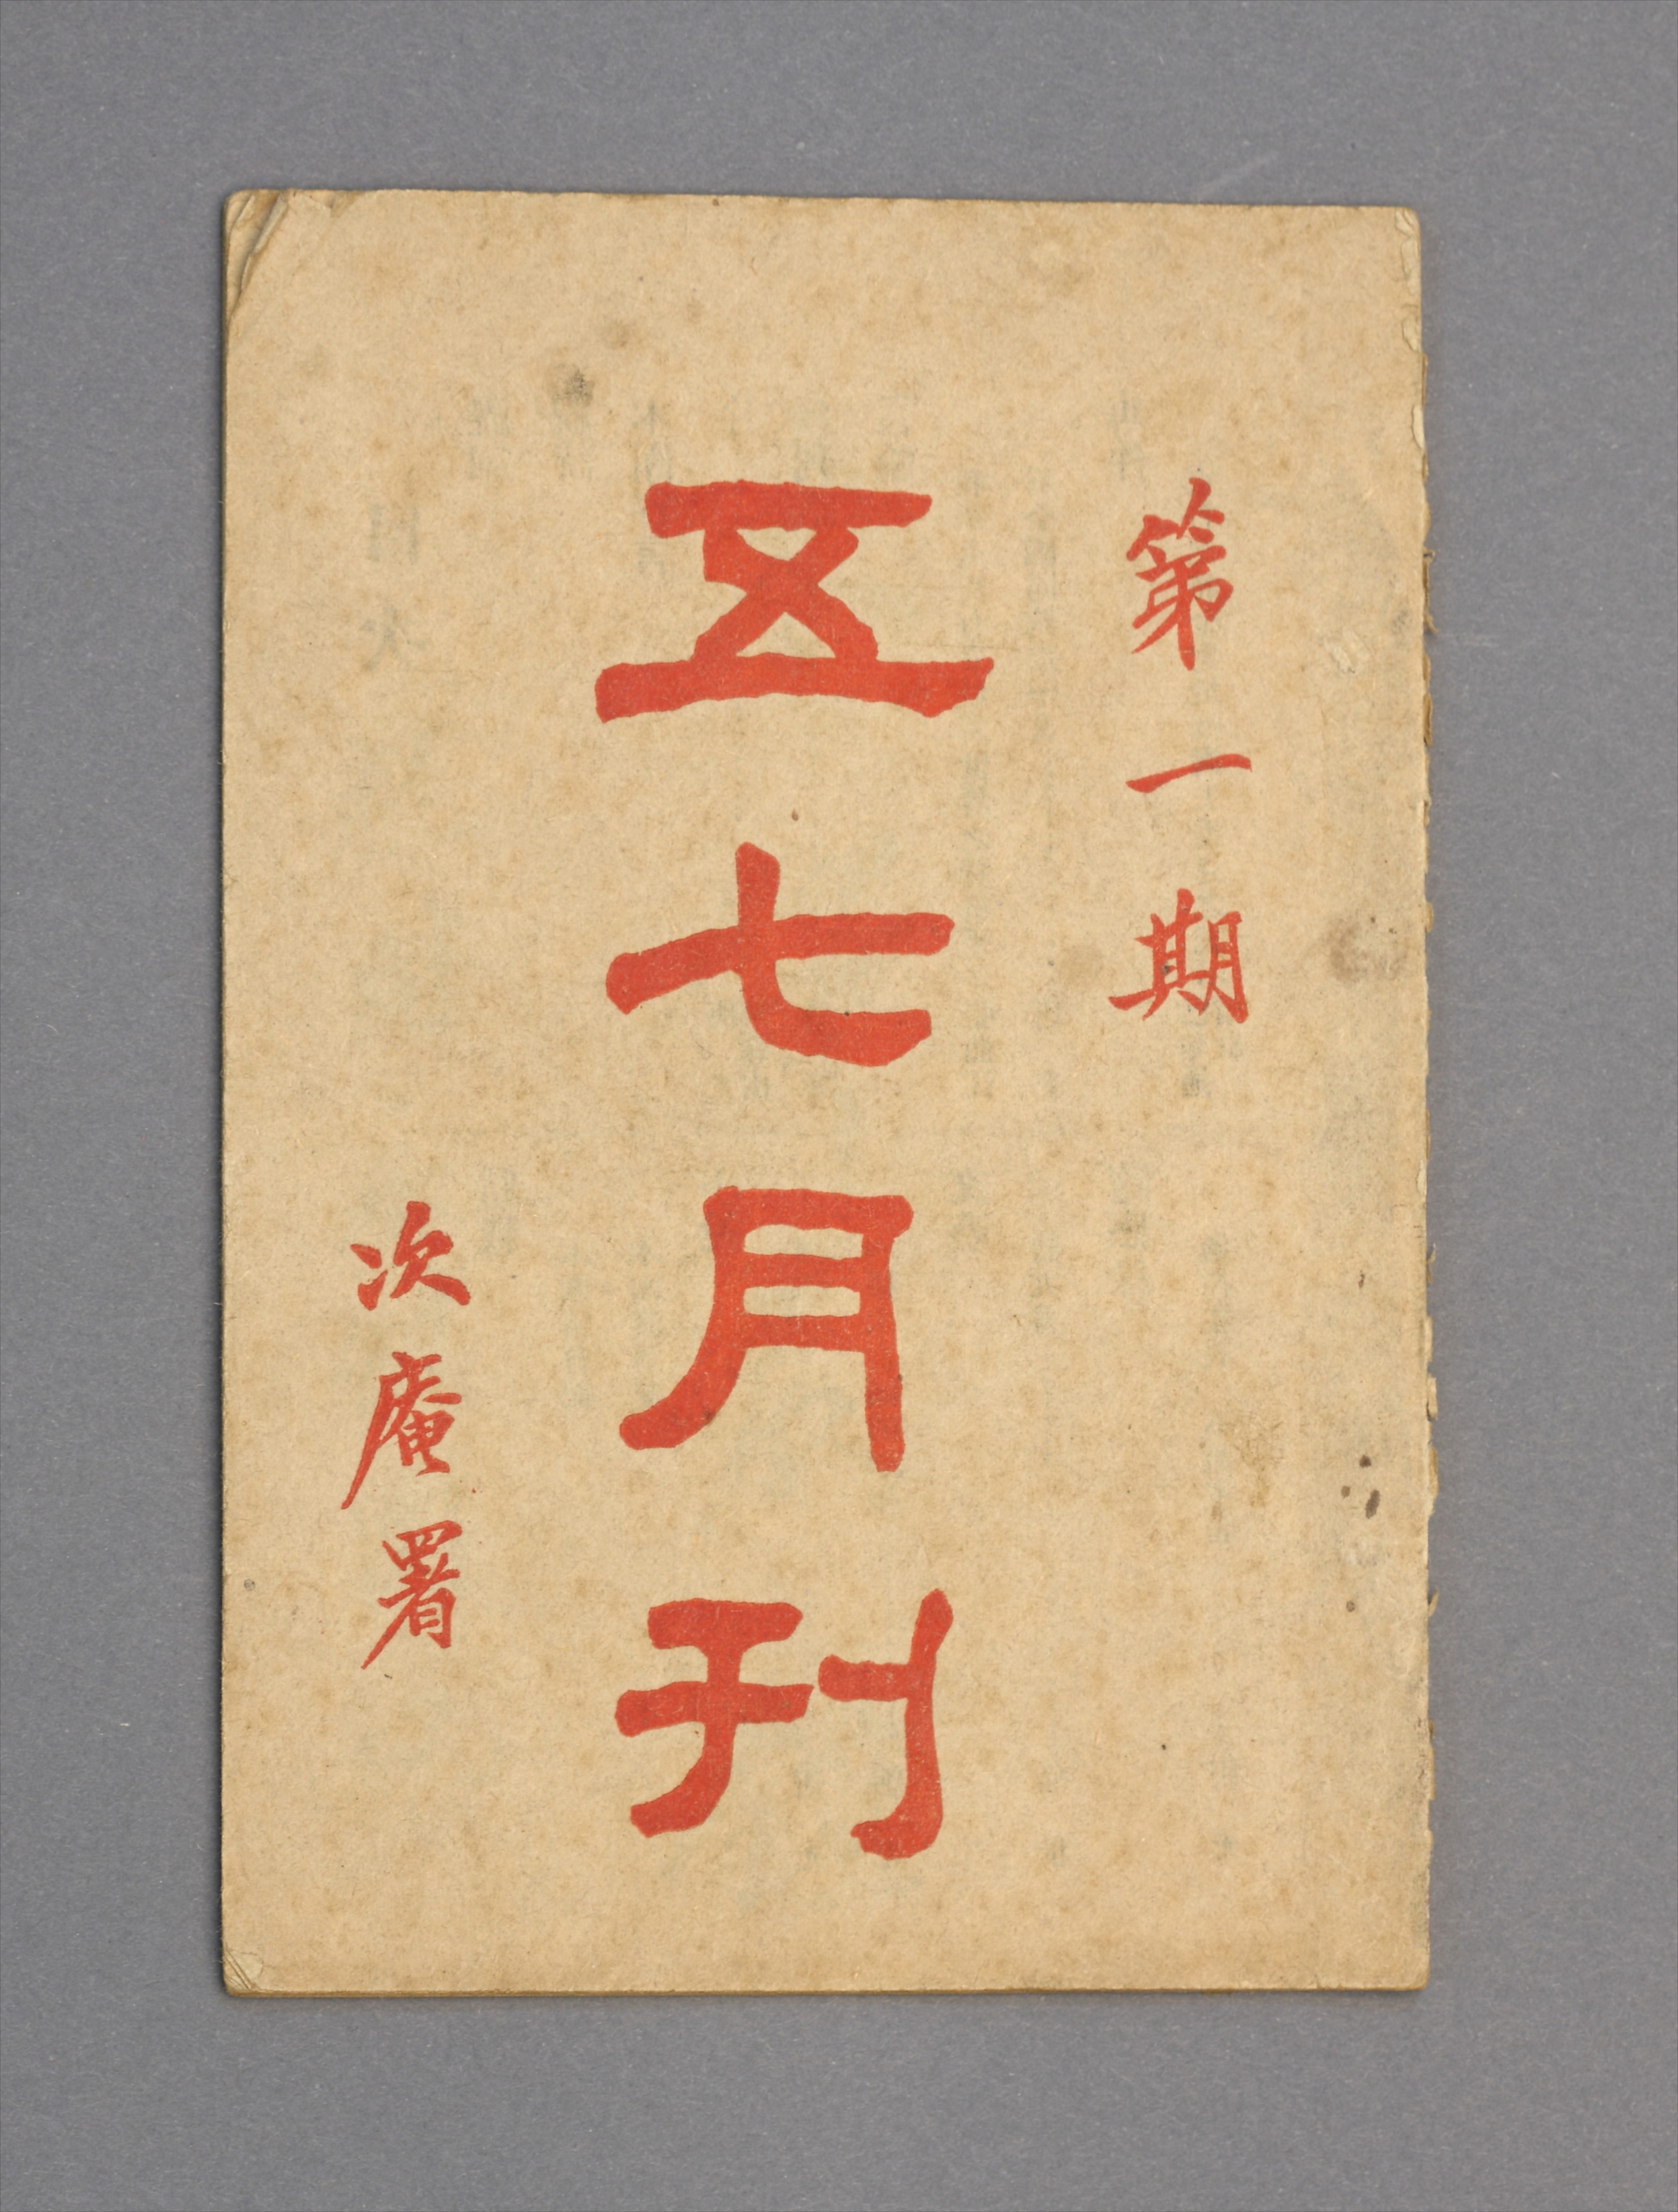 第一期
五七月刊
次庵署